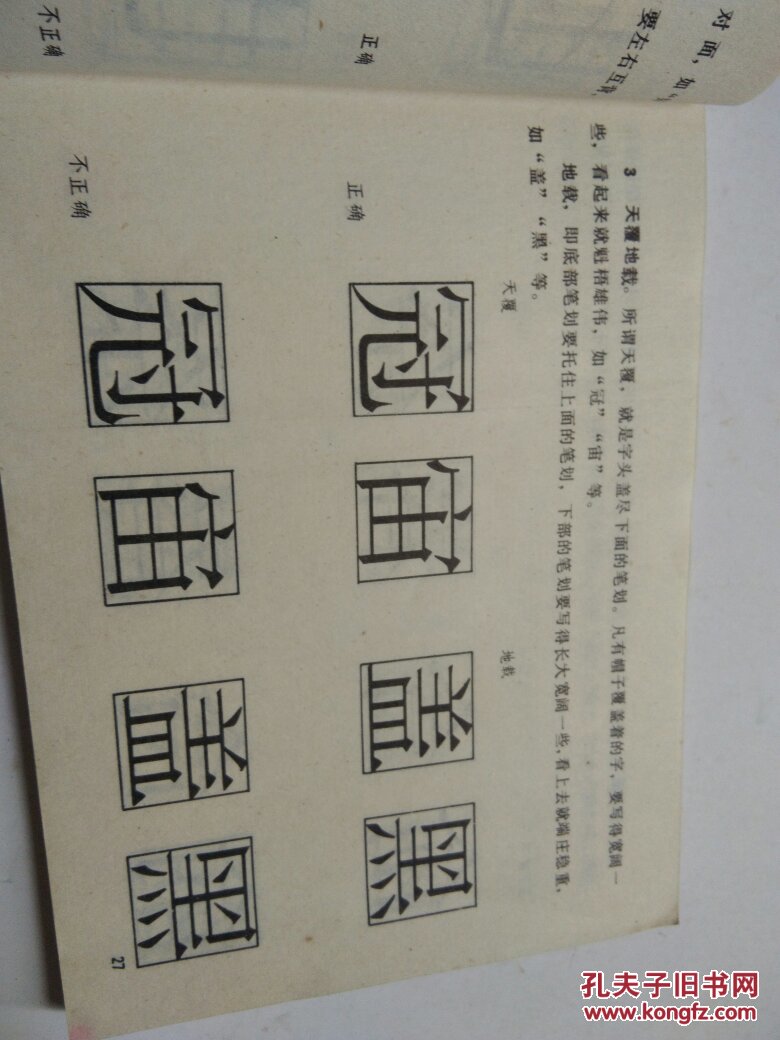 对面，如
要左右互
正确
不正确
3　天覆地载。所谓天覆，就是字头盖尽下面的笔划。凡有帽子覆盖着的字，要写得宽阔一
些，看起来就魁梧雄伟，如“冠”“宙”等。
地载，即底部笔划要托住上面的笔划，下部的笔划要写得长大宽阔一些，看上去就端庄稳重，
如“盖”“黑”等。
天覆
地载
正确
冠 宙 盖 黑
不正确
冠 宙 盖 黑
27
孔夫子旧书网
www.kongfz.com